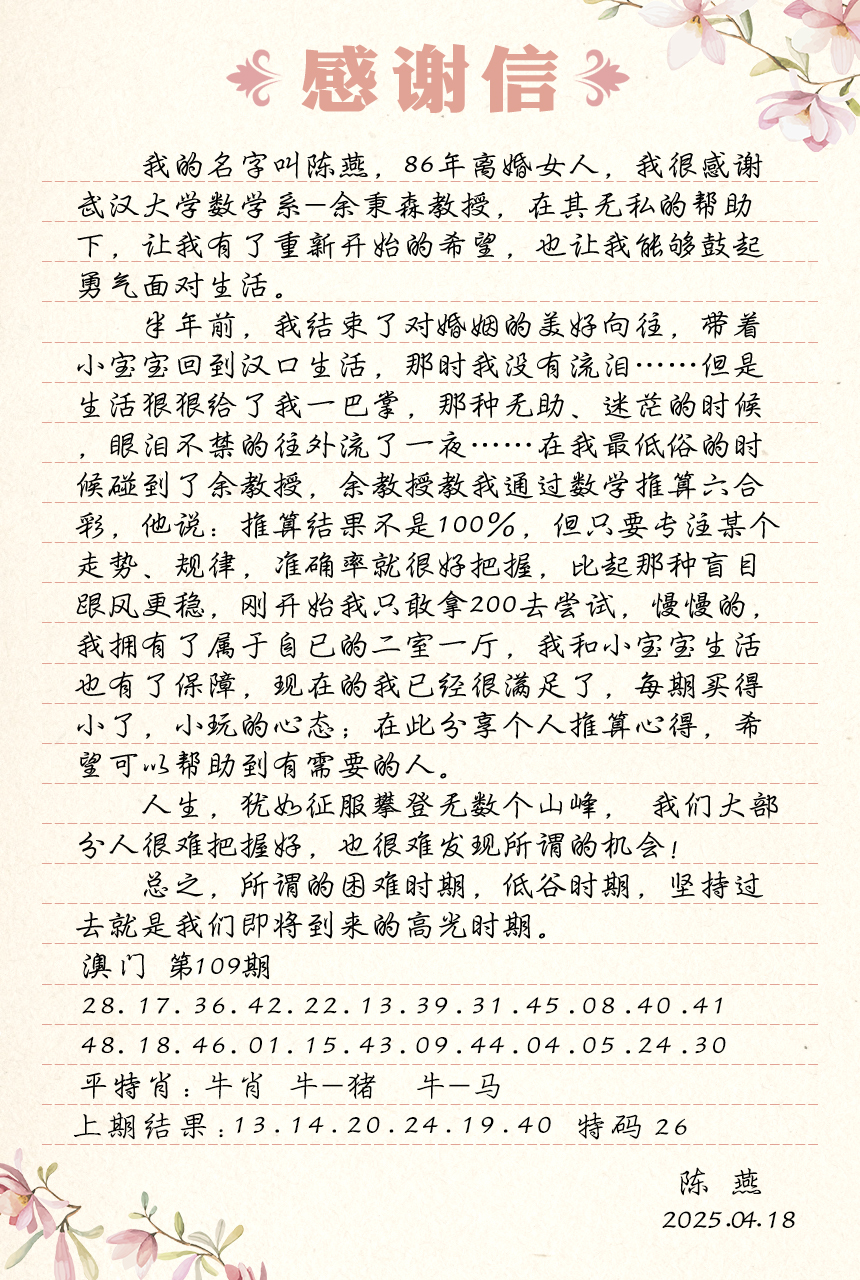 感谢信
我的名字叫陈燕，86年离婚女人，我很感谢
武汉大学数学系—余秉森教授，在其无私的帮助
下，让我有了重新开始的希望，也让我能够鼓起
勇气面对生活。
半年前，我结束了对婚姻的美好向往，带着
小宝宝回到汉口生活，那时我没有流泪……但是
生活狠狠给了我一巴掌，那种无助、迷茫的时候
，眼泪不禁的往外流了一夜……在我最低俗的时
候碰到了余教授，余教授教我通过数学推算六合
彩，他说：推算结果不是100%，但只要专注某个
走势、规律，准确率就很好把握，比起那种盲目
跟风更稳，刚开始我只敢拿200去尝试，慢慢的，
我拥有了属于自已的二室一厅，我和小宝宝生活
也有了保障，现在的我已经很满足了，每期买得
小了，小玩的心态；在此分享个人推算心得，希
望可以帮助到有需要的人。
人生，犹如征服攀登无数个山峰， 我们大部
分人很难把握好，也很难发现所谓的机会！
总之，所谓的困难时期，低谷时期，坚持过
去就是我们即将到来的高光时期。
澳门 第109期
28.17.36.42.22.13.39.31.45.08.40.41
48.18.46.01.15.43.09.44.04.05.24.30
平特肖：牛肖 牛—猪 牛—马
上期结果：13.14.20.24.19.40 特码 26
陈 燕
2025.04.18